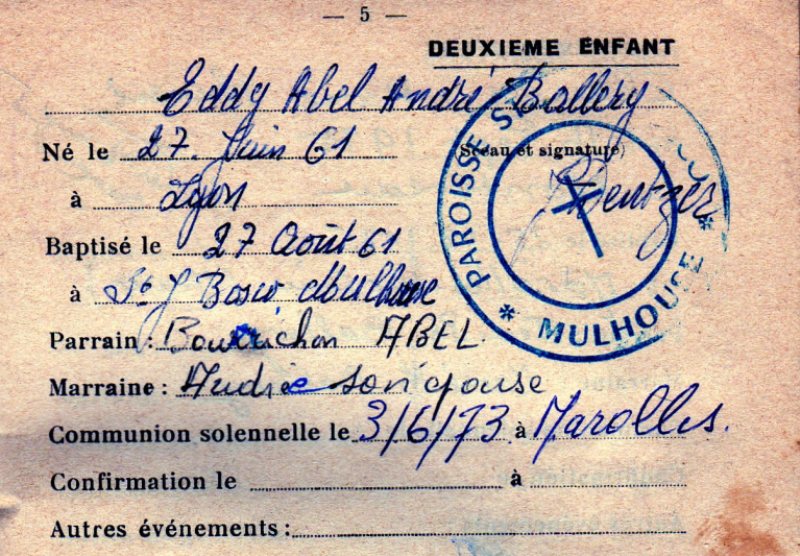 — 5 —
DEUXIEME ENFANT
Eddy Abel André Ballery
Né le 27. Juin 61
(Sceau et signature)
à Lyon
Baptisé le 27 Août 61
à St J Bosco Mulhouse
PAROISSE ST
* MULHOUSE *
Parrain : Bourrichon ABEL
Marraine : Andrée son épouse
Communion solennelle le 3/6/73 à Marolles.
Confirmation le à
Autres événements :